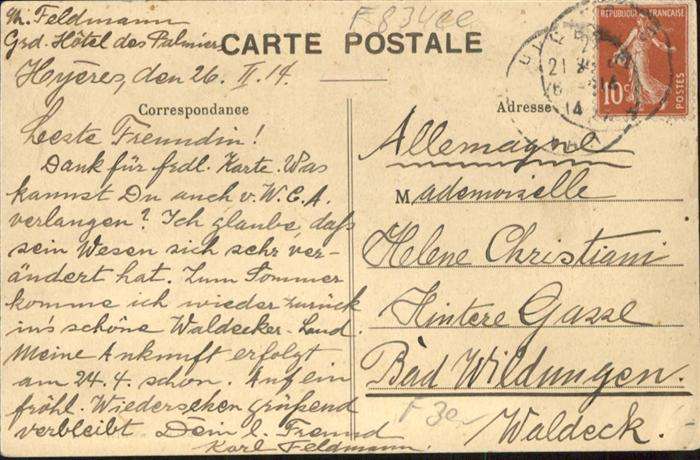 M. Feldmann
Grd. Hôtel des Palmiers
Hyères, den 26. II. 14.
F 834ee
CARTE POSTALE
RÉPUBLIQUE FRANÇAISE
10c
POSTES
Correspondance
Leeste Freundin!
Dank für frdl. Karte. Was
kannst Du auch v. W.C.A.
verlangen? Ich glaube, daß
sein Wesen sich sehr ver-
ändert hat. Zum Sommer
komme ich wieder zurück
in's schöne Waldecker-Land.
Meine Ankunft erfolgt
am 24.4. schon. Auf ein
fröhl. Wiedersehen grüßend
verbleibt Dein l. Freund
Karl Feldmann.
Adresse
Allemagne
Mademoiselle
Helene Christiani
Hintere Gasse
Bad Wildungen.
F 3e
Waldeck.